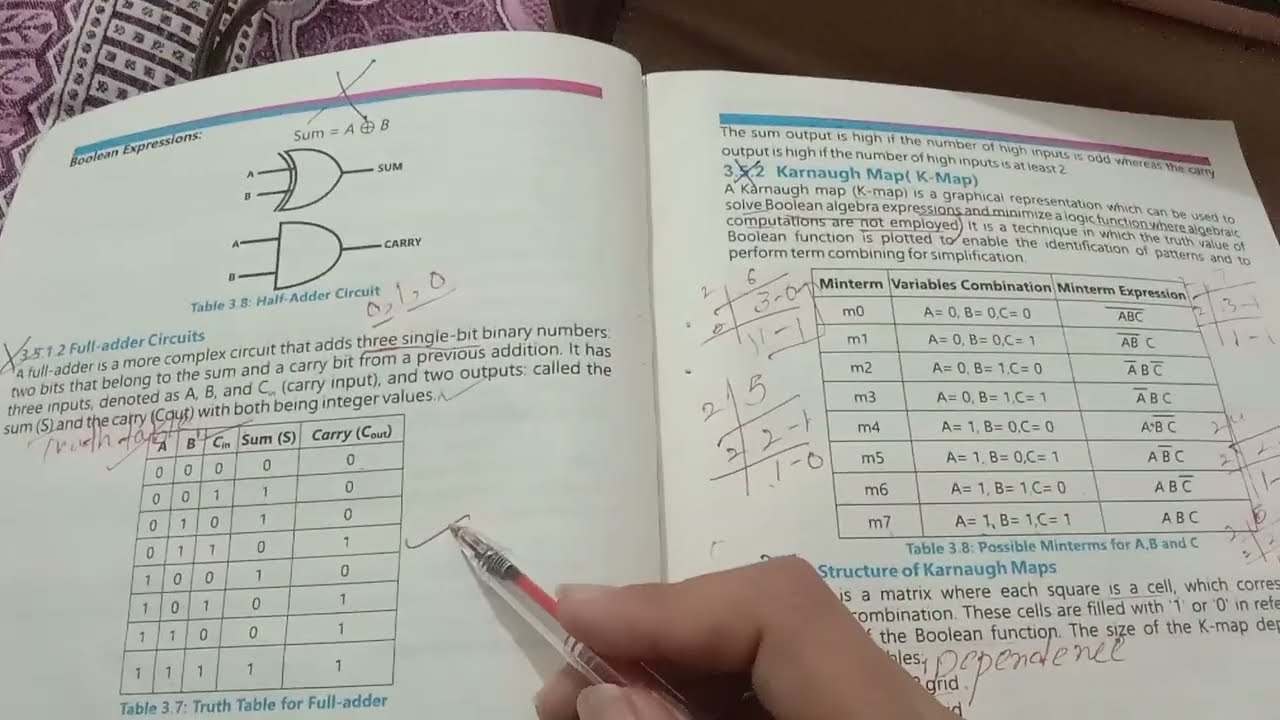 Boolean Expressions:
Sum = A ⊕ B
A
B
SUM
A
B
CARRY
Table 3.8: Half-Adder Circuit
0, 1, 0
3.5.1.2 Full-adder Circuits
A full-adder is a more complex circuit that adds three single-bit binary numbers:
two bits that belong to the sum and a carry bit from a previous addition. It has
three inputs, denoted as A, B, and Cin (carry input), and two outputs: called the
sum (S) and the carry (Cout) with both being integer values.
A B Cin Sum (S) Carry (Cout)
0 0 0 0 0
0 0 1 1 0
0 1 0 1 0
0 1 1 0 1
1 0 0 1 0
1 0 1 0 1
1 1 0 0 1
1 1 1 1 1
Table 3.7: Truth Table for Full-adder
The sum output is high if the number of high inputs is odd whereas the carry
output is high if the number of high inputs is at least 2.
3.5.2 Karnaugh Map( K-Map)
A Karnaugh map (K-map) is a graphical representation which can be used to
solve Boolean algebra expressions and minimize a logic function where algebraic
computations are not employed. It is a technique in which the truth value of
Boolean function is plotted to enable the identification of patterns and to
perform term combining for simplification.
Minterm Variables Combination Minterm Expression
m0 A= 0, B= 0,C= 0 A̅B̅C̅
m1 A= 0, B= 0,C= 1 A̅B̅ C
m2 A= 0, B= 1,C= 0 A̅ B C̅
m3 A= 0, B= 1,C= 1 A̅ B C
m4 A= 1, B= 0,C= 0 A B̅ C̅
m5 A= 1, B= 0,C= 1 A B̅ C
m6 A= 1, B= 1,C= 0 A B C̅
m7 A= 1, B= 1,C= 1 A B C
2 6
2 3-0
1-1
2 5
2 2-1
1-0
7
2 3-1
1-1
Table 3.8: Possible Minterms for A,B and C
Structure of Karnaugh Maps
is a matrix where each square is a cell, which corres
ombination. These cells are filled with '1' or '0' in refe
the Boolean function. The size of the K-map dep
bles:
Dependence
grid